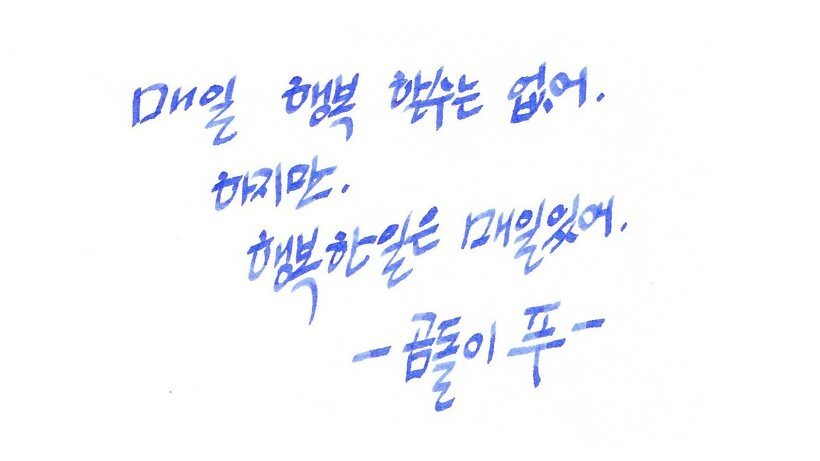 매일 행복 할수는 없어.
하지만.
행복한일은 매일있어.
-곰돌이 푸-